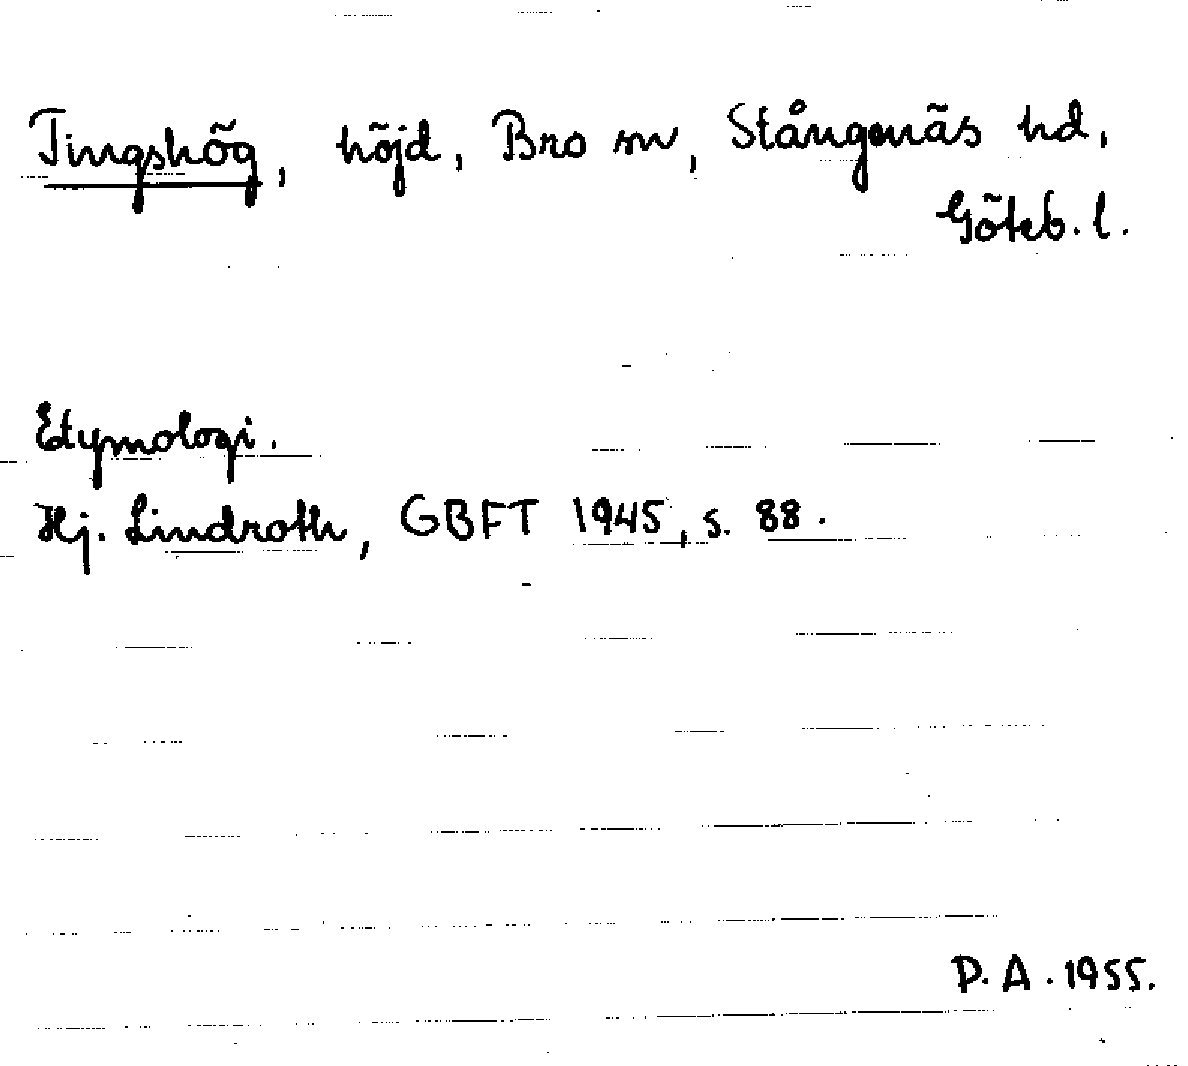 Tingshög, höjd, Bro sn, Stångenäs hd,
Göteb. l.
Etymologi.
Hj. Lindroth, GBFT 1945, s. 88.
P. A. 1955.